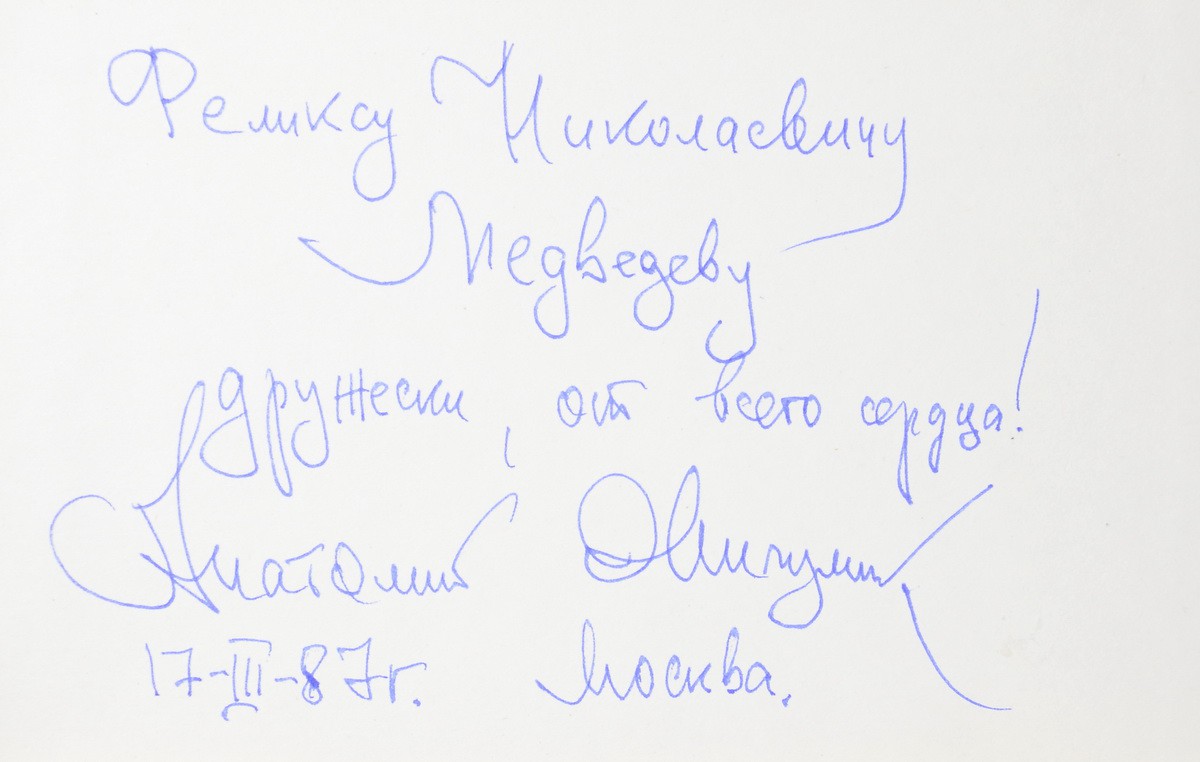 Феликсу Николаевичу
Медведеву
дружески, от всего сердца!
Анатолий
17-III-87г. Москва.